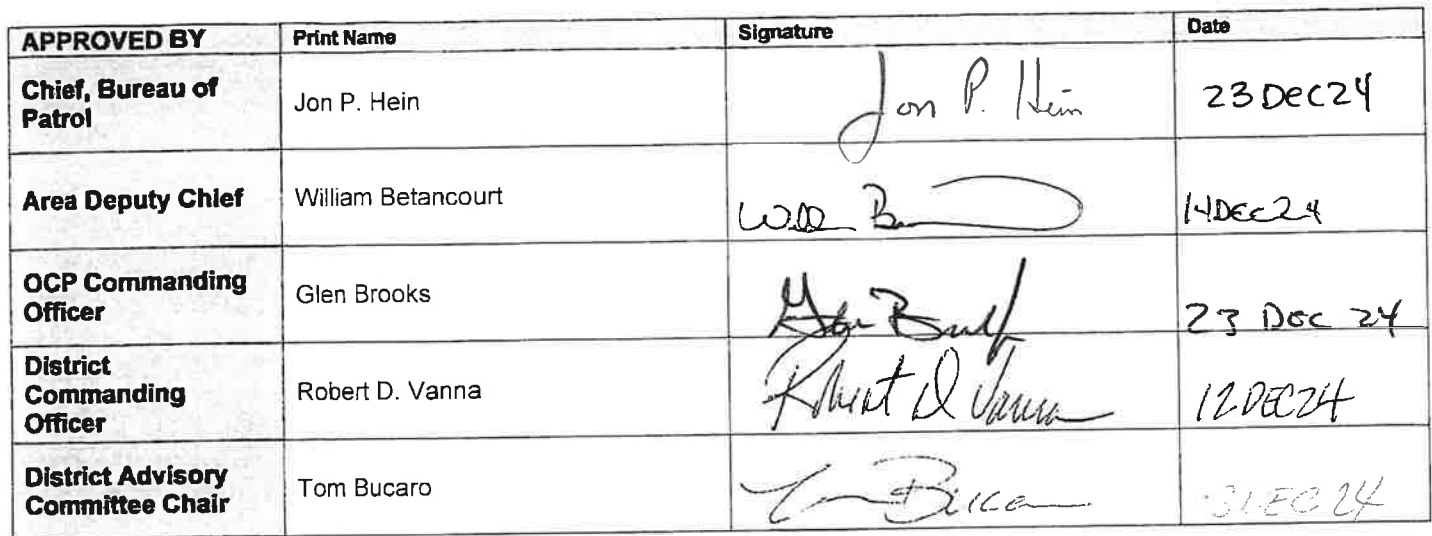 APPROVED BY Print Name Signature Date
Chief, Bureau of
Patrol
Jon P. Hein
Jon P. Hein
23 Dec 24
Area Deputy Chief
William Betancourt
14DEC24
OCP Commanding
Officer
Glen Brooks
23 Dec 24
District
Commanding
Officer
Robert D. Vanna
Robert D Vanna
12DEC24
District Advisory
Committee Chair
Tom Bucaro